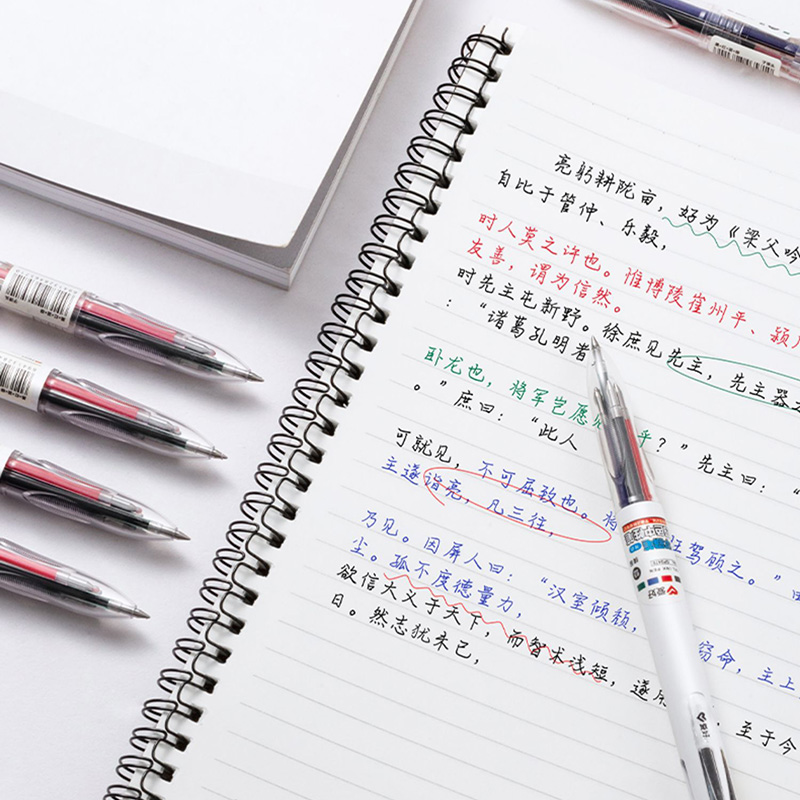 亮躬耕陇亩，好为《梁父吟
自比于管仲、乐毅，
时人莫之许也。惟博陵崔州平、颍
友善，谓为信然。
时先主屯新野。徐庶见先主，先主器之
：“诸葛孔明者
卧龙也，将军岂愿见 乎？”先主曰：“
。”庶曰：“此人
可就见，不可屈致也。将 枉驾顾之。”由
主遂诣亮，凡三往，
乃见。因屏人曰：“汉室倾颓， 窃命，主上
尘。孤不度德量力，
欲信大义于天下，而智术浅短，遂用 ，至于今
日。然志犹未已，
爱好